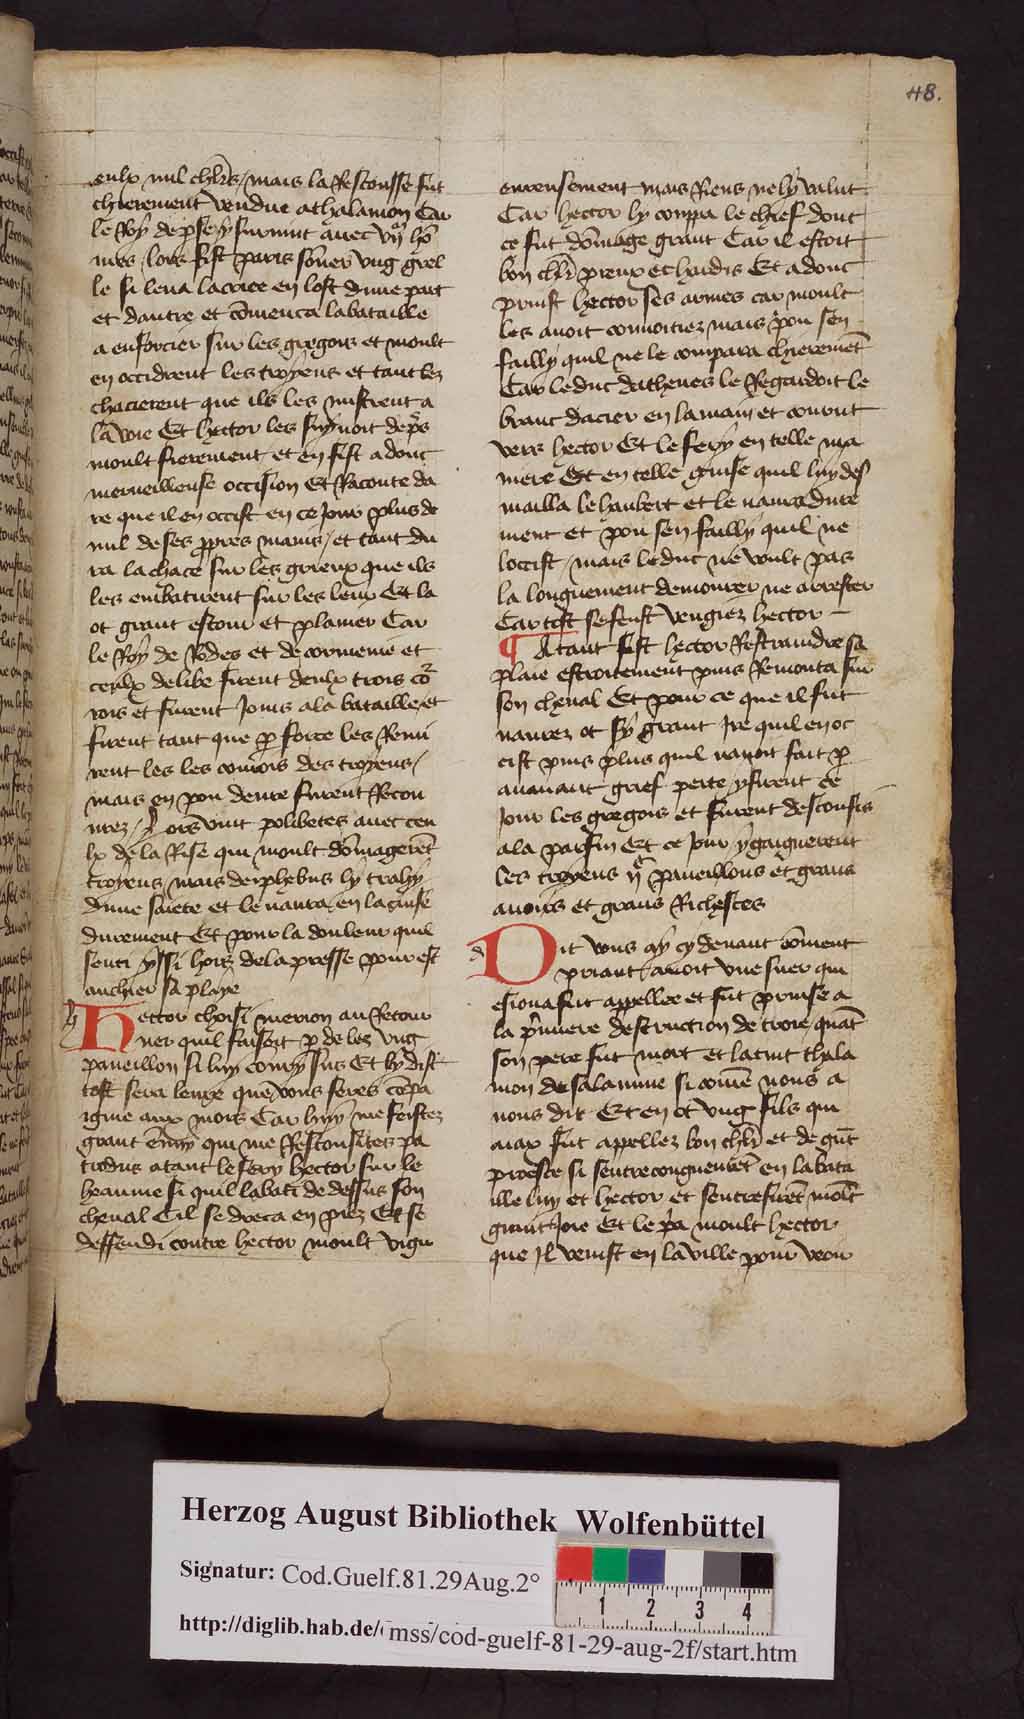 48.
eulx mil chlrs / mais la Rescousse fut
chierement vendue a thalamon Car
le Roy de perse y survint avec vii hom
mes / lors fist paris soner ung grel
le si leva la criee en lost dune part
et dautre et comenca la bataille
a enforcier sur les gregois et moult
en occidrent les troyens et tant lez
chacierent que ils les mistrent a
la voie Et hector les suyvoit de pres
moult fierement et en fist adonc
merveilleuse occision Et Raconte da
re que il en occist en ce Jour plus de
mil de ses ppres mains / et tant du
ra la chace sur les grieux que ils
les embatirent sur les leur Et la
ot grant estour et planier Car
le Roy de Rodes et de cormenie et
ceulx delibe firent deulx trois co
rois et furent Joins a la bataille et
firent tant que p force les Remi
rent les les conrois des troyens /
mais en pou deure furent Recou
vrez / Lors vint polibetes avec ceu
lx de la Rise qui moult domageret
troyens mais deiphebus ly trahy
dune saiete et le navra en la cuise
durement Et pour la douleur quil
senti yssi hors de la presse pour est
anchier sa playe
Hector choisi merion au Retour
ner quil faisoit p de lez ung
paveillon si luy couru sus Et ly dist
tost sera leure que vous seres copa
igne aux mors Car huy me feistez
grant enuy qui me Rescousistes pa
troclus atant le fery hector sur le
heaume si quil labati de dessus son
cheval Cil se dreca en piez Et se
deffendi contre hector moult vigu
eureusement mais Riens ne ly valut
Car hector ly coupa le chief dont
ce fut domage grant Car il estoit
bon chlr preux et hardis Et adonc
prinst hector ses armes car moult
les avoit couvoitiez mais pou sen
failly quil ne le compara chieremet
Car le duc dathenes le Regardoit le
branc dacier en la main et courut
vers hector Et le fery en telle ma
niere Et en telle guise quil luy des
mailla le haubert et le navra dure
ment et pou sen failly quil ne
loccist / mais le duc ne voult pas
la longuement demourer ne arrester
Car tost se feust vengiez hector
¶ Atant fist hector Restraindre sa
plaie estroitement puis Remonta sur
son cheval Et pour ce que il fut
navrez ot sy grant Ire quil en oc
cist puis plus quil navoit fait p
avavant grief perte y firent ce
Jour les gregois et furent desconfis
a la parfin Et ce Jour y gaignerent
les troyens paveillons et grans
avoirs et grans Richesces
Dit vous ay cy devant coment
priant avoit une suer qui
esiona fut appellee et fut prinse a
la pmiere destruction de troie quat
son pere fut mort et la tint thala
mon de salamine si come nous a
vons dit Et en ot ung fils qui
aiax fut appellez bon chlr et de gnt
proesce si sentrecongneuret en la bata
ille luy et hector et sentrefiret moult
grant Joie Et le pa moult hector
que Il venist en la ville pour veoir
Herzog August Bibliothek Wolfenbüttel
Signatur: Cod.Guelf.81.29Aug.2°
1 2 3 4
http://diglib.hab.de/mss/cod-guelf-81-29-aug-2f/start.htm